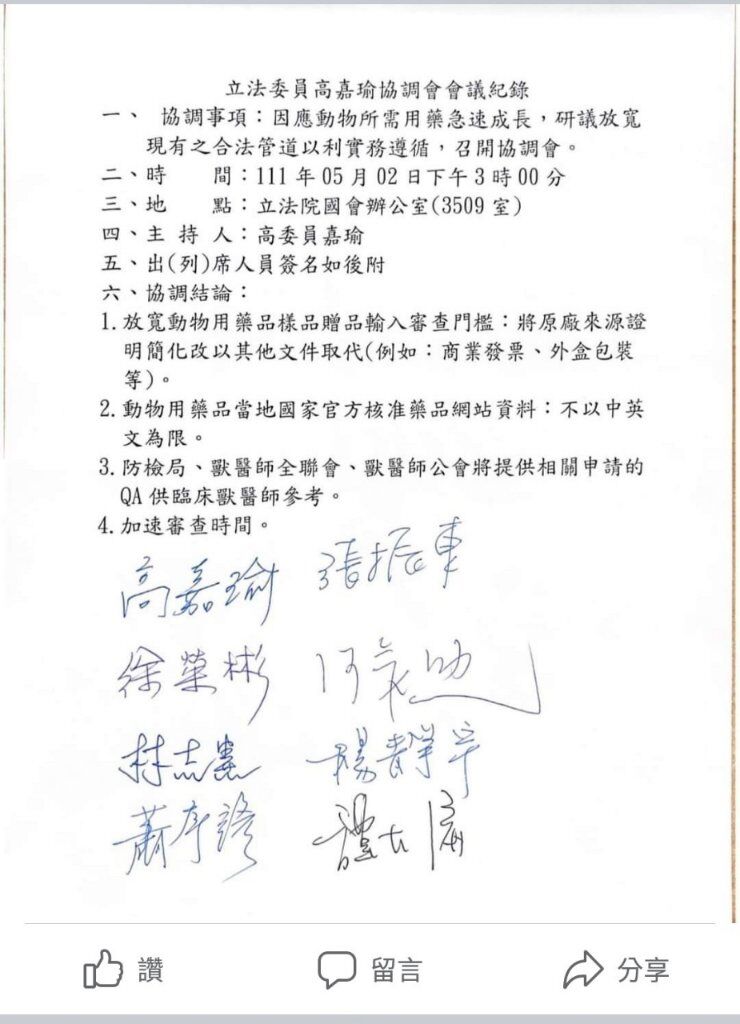 立法委員高嘉瑜協調會會議紀錄
一、 協調事項：因應動物所需用藥急速成長，研議放寬
現有之合法管道以利實務遵循，召開協調會。
二、時　　間：111 年 05 月 02 日下午 3 時 00 分
三、地　　點：立法院國會辦公室(3509 室)
四、主 持 人：高委員嘉瑜
五、出(列)席人員簽名如後附
六、協調結論：
1.放寬動物用藥品樣品贈品輸入審查門檻：將原廠來源證
明簡化改以其他文件取代(例如：商業發票、外盒包裝
等)。
2.動物用藥品當地國家官方核准藥品網站資料：不以中英
文為限。
3.防檢局、獸醫師全聯會、獸醫師公會將提供相關申請的
QA 供臨床獸醫師參考。
4.加速審查時間。
高嘉瑜 張振東
徐榮彬
林志憲 楊靜宇
讚 留言 分享